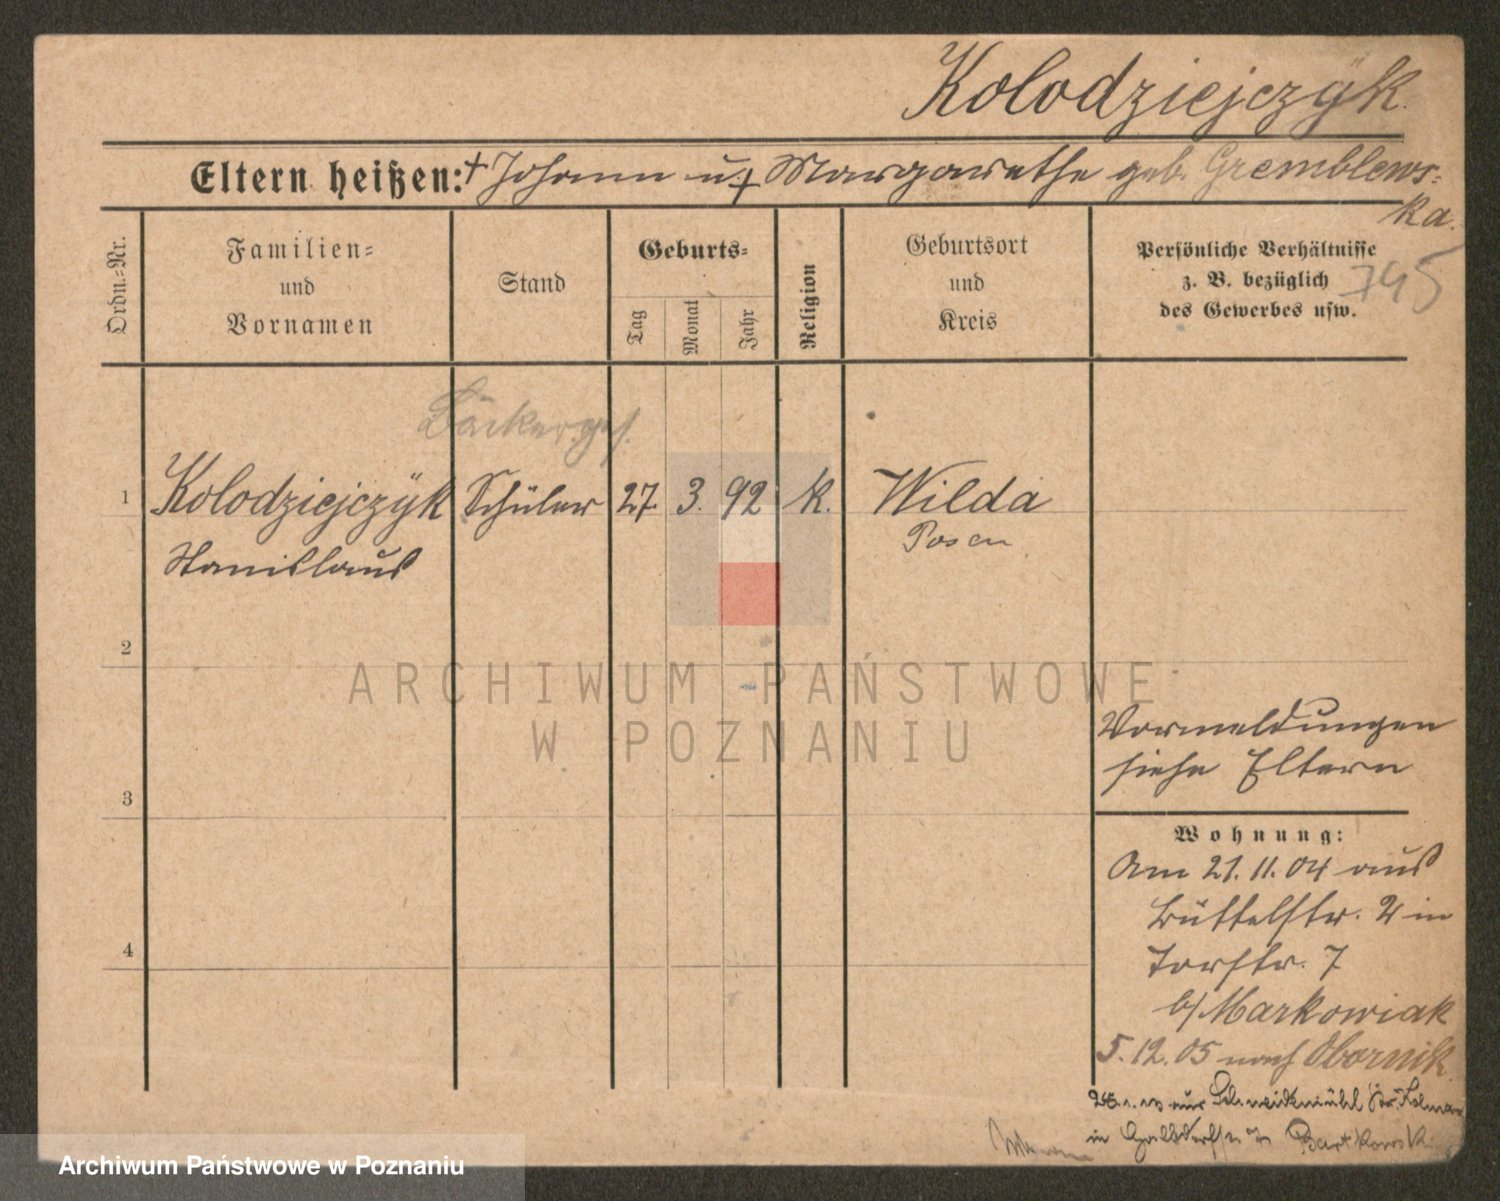 Kolodziejczÿk
Eltern heißen: † Johann u. † Margarethe geb. Gremblews=
ka.
Ordn.=Nr.
Familien=
und
Vornamen
Stand
Geburts=
Tag
Monat
Jahr
Religion
Geburtsort
und
Kreis
Persönliche Verhältnisse
z. B. bezüglich
des Gewerbes usw.
745
Bäckerges.
1 Kolodziejczÿk Schüler 27. 3. 92 k. Wilda
Stanislaus
Posen
2
ARCHIWUM PAŃSTWOWE
W POZNANIU
Vormeldungen
siehe Eltern
3
Wohnung:
Am 21.11.04 aus
Büttelstr. 2 in
Torstr. 7
b/Markowiak
4
5.12.05 nach Obornik
aus Schneidemühl Kr. Kolmar
in Bartkowski
Archiwum Państwowe w Poznaniu